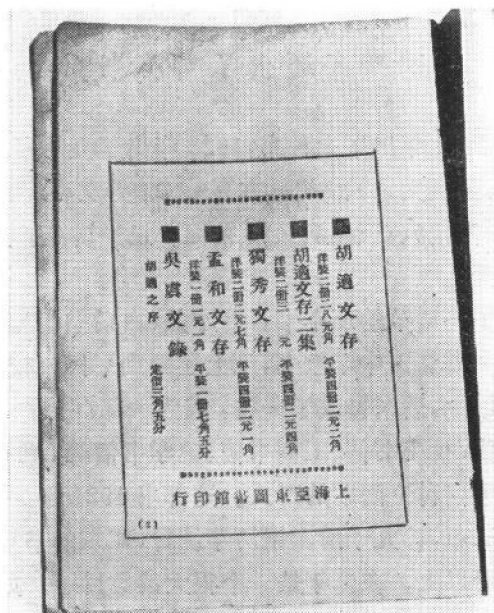 胡適文存
洋裝二冊二元八角 平裝四冊二元二角
胡適文存二集
洋裝二冊三元 平裝四冊二元四角
獨秀文存
洋裝二冊二元七角 平裝四冊二元一角
孟和文存
洋裝一冊一元一角 平裝一冊七角五分
吳虞文錄
胡適之序 定價三角五分
上海亞東圖書館印行
(2)